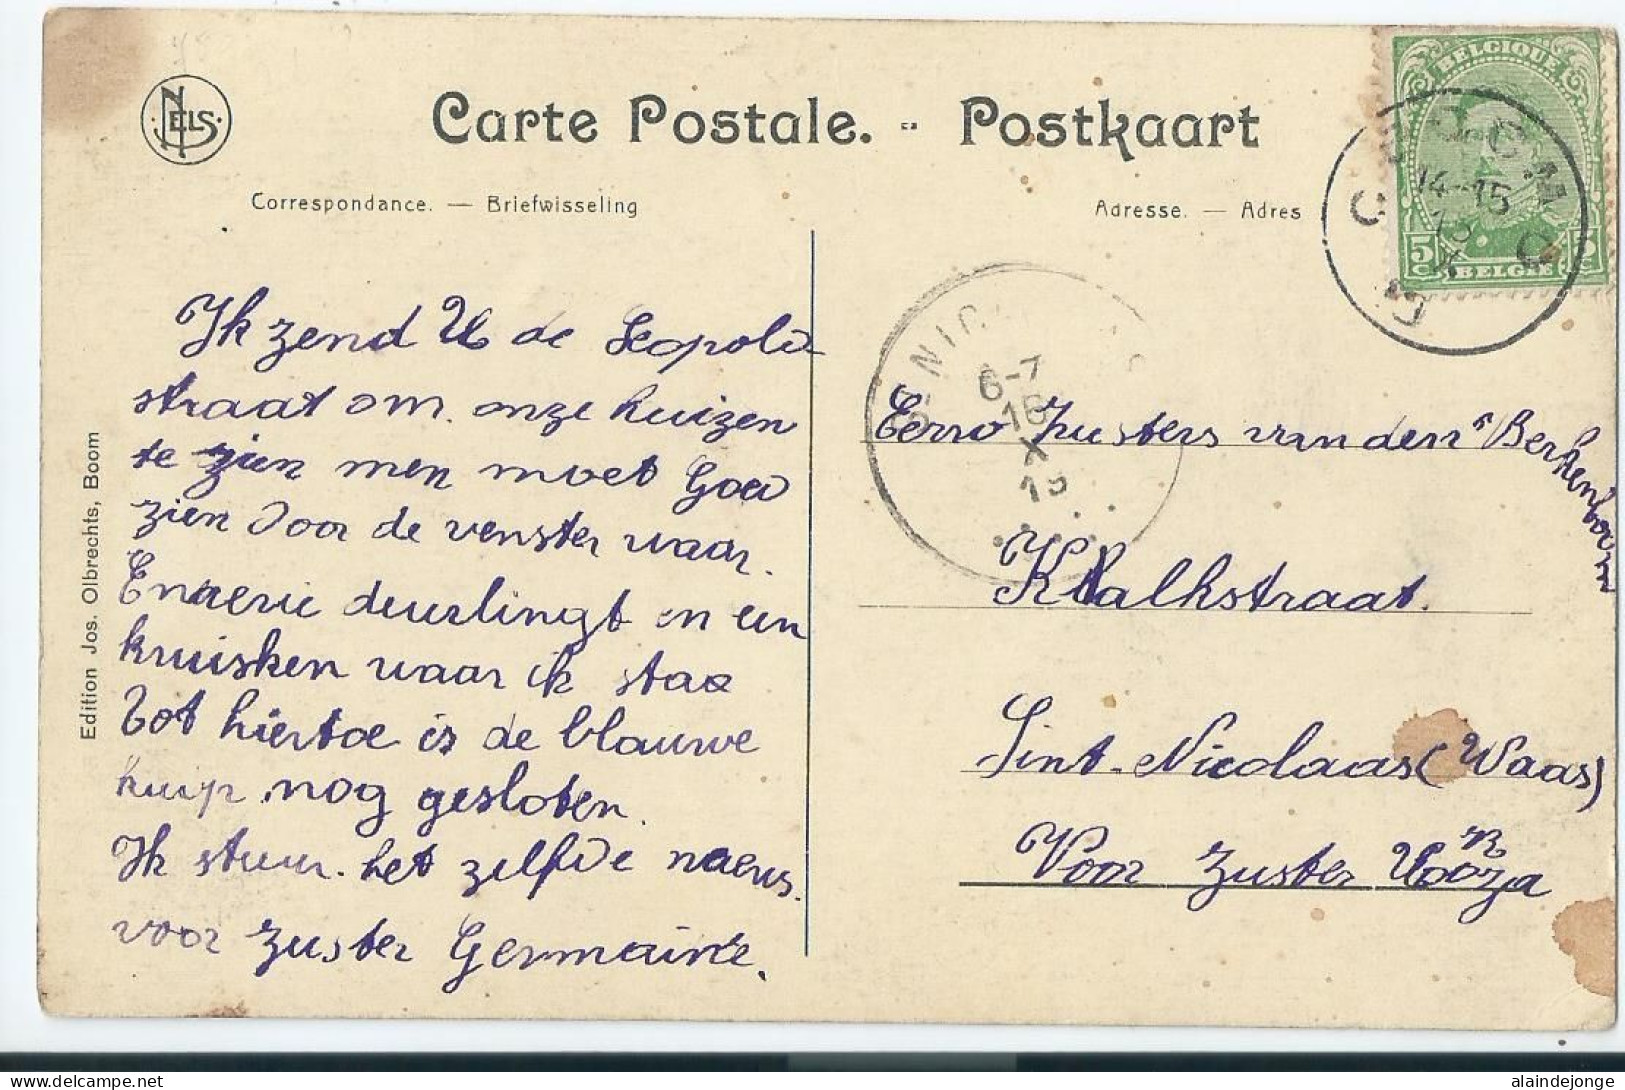 NELS
Carte Postale. - Postkaart
Correspondance. — Briefwisseling
Adresse. — Adres
BELGIQUE
5c 5c
BELGIË
BOOM
14-15
X
Edition Jos. Olbrechts, Boom
Ik zend U de Leopold
straat om onze huizen
te zien men moet Goed
zien door de venster waar.
deurlingt en een
kruisken waar ik staa
tot hiertoe is de blauwe
kuip nog gesloten.
Ik stuur het zelfde naers
voor zuster Germaine.
6-7
16
X
19
Eerw Zusters van den Berkenboom
Kalkstraat.
Sint-Nicolaas (Waas)
Voor Zuster
alaindejonge